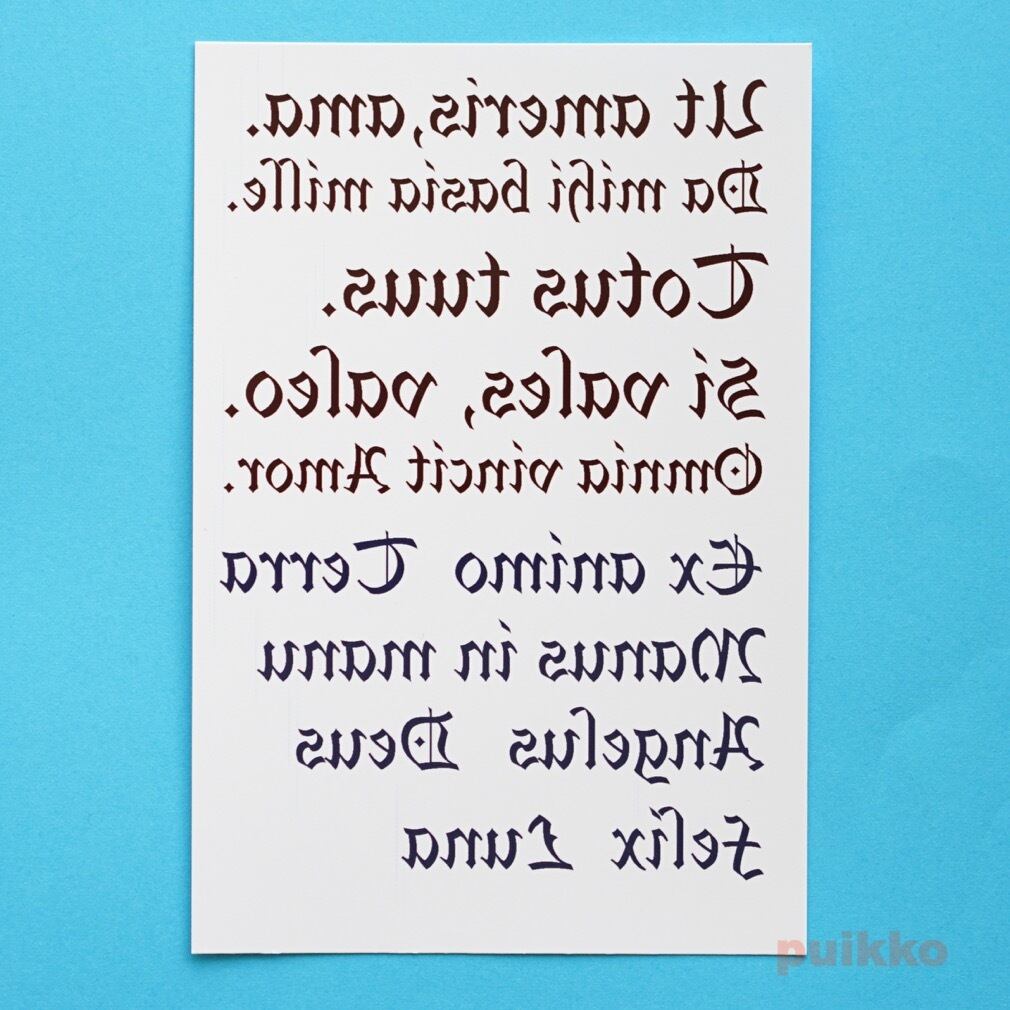 Ut ameris, ama.
Da mihi basia mille.
Totus tuus.
Si vales, valeo.
Omnia vincit Amor.
Ex animo Terra
Manus in manu
Angelus Deus
Felix Luna
puikko